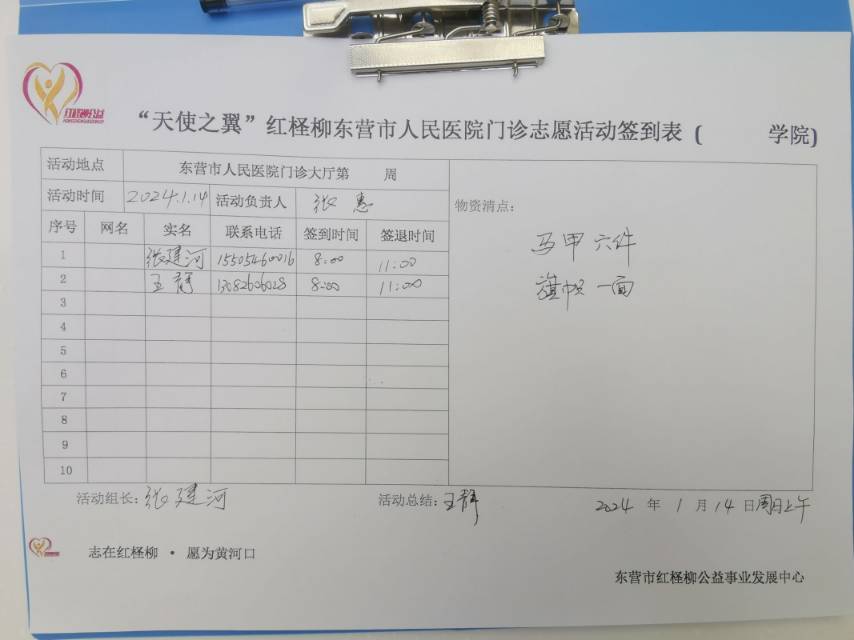 红柽柳公益
“天使之翼”红柽柳东营市人民医院门诊志愿活动签到表 ( 学院)
活动地点 东营市人民医院门诊大厅第 周
活动时间 2024.1.14 活动负责人 张惠
物资清点:
序号 网名 实名 联系电话 签到时间 签退时间
马甲六件
1 张建河 15505460016 8:00 11:00
2 王静 8:00 11:00
旗帜一面
3
4
5
6
7
8
9
10
活动组长: 张建河 活动总结: 王静 2024 年 1 月 14 日周日上午
志在红柽柳 · 愿为黄河口
东营市红柽柳公益事业发展中心